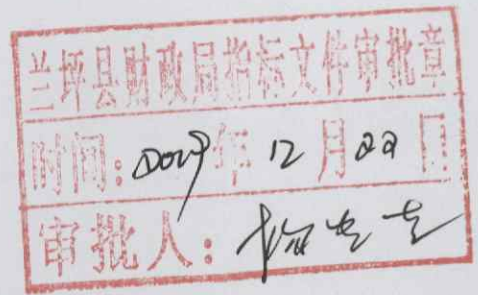 兰坪县财政局指标文件审批章
时间：2019年12月22日
审批人：